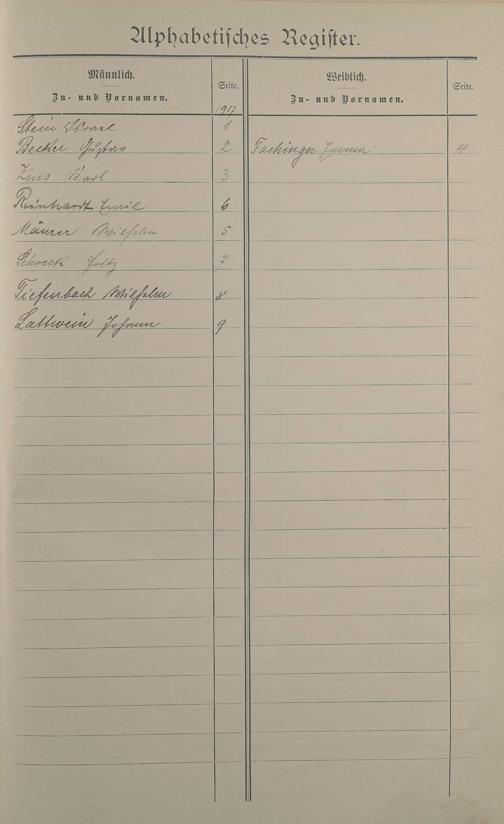 Alphabetisches Register.
Männlich.
Zu- und Vornamen.
Seite.
Weiblich.
Zu- und Vornamen.
Seite.
1917
Stein 1
Becker Gustav 2 Fachinger Emma 4
Zins Karl 3
Reinhardt Emil 6
Mäurer Wilhelm 5
Schreck Fritz 7
Tiefenbach Wilhelm 8
Lattwein Johann 9